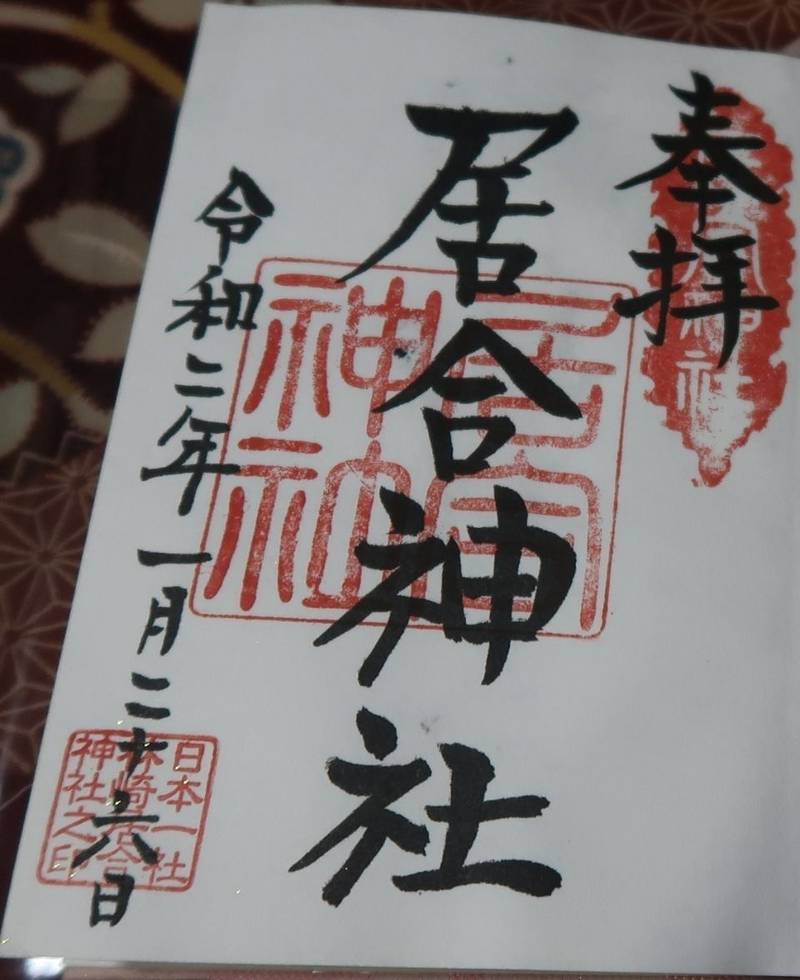 奉拝
居合神社
令和二年一月二十六日
居合神社
日本一社
林崎居合
神社之印